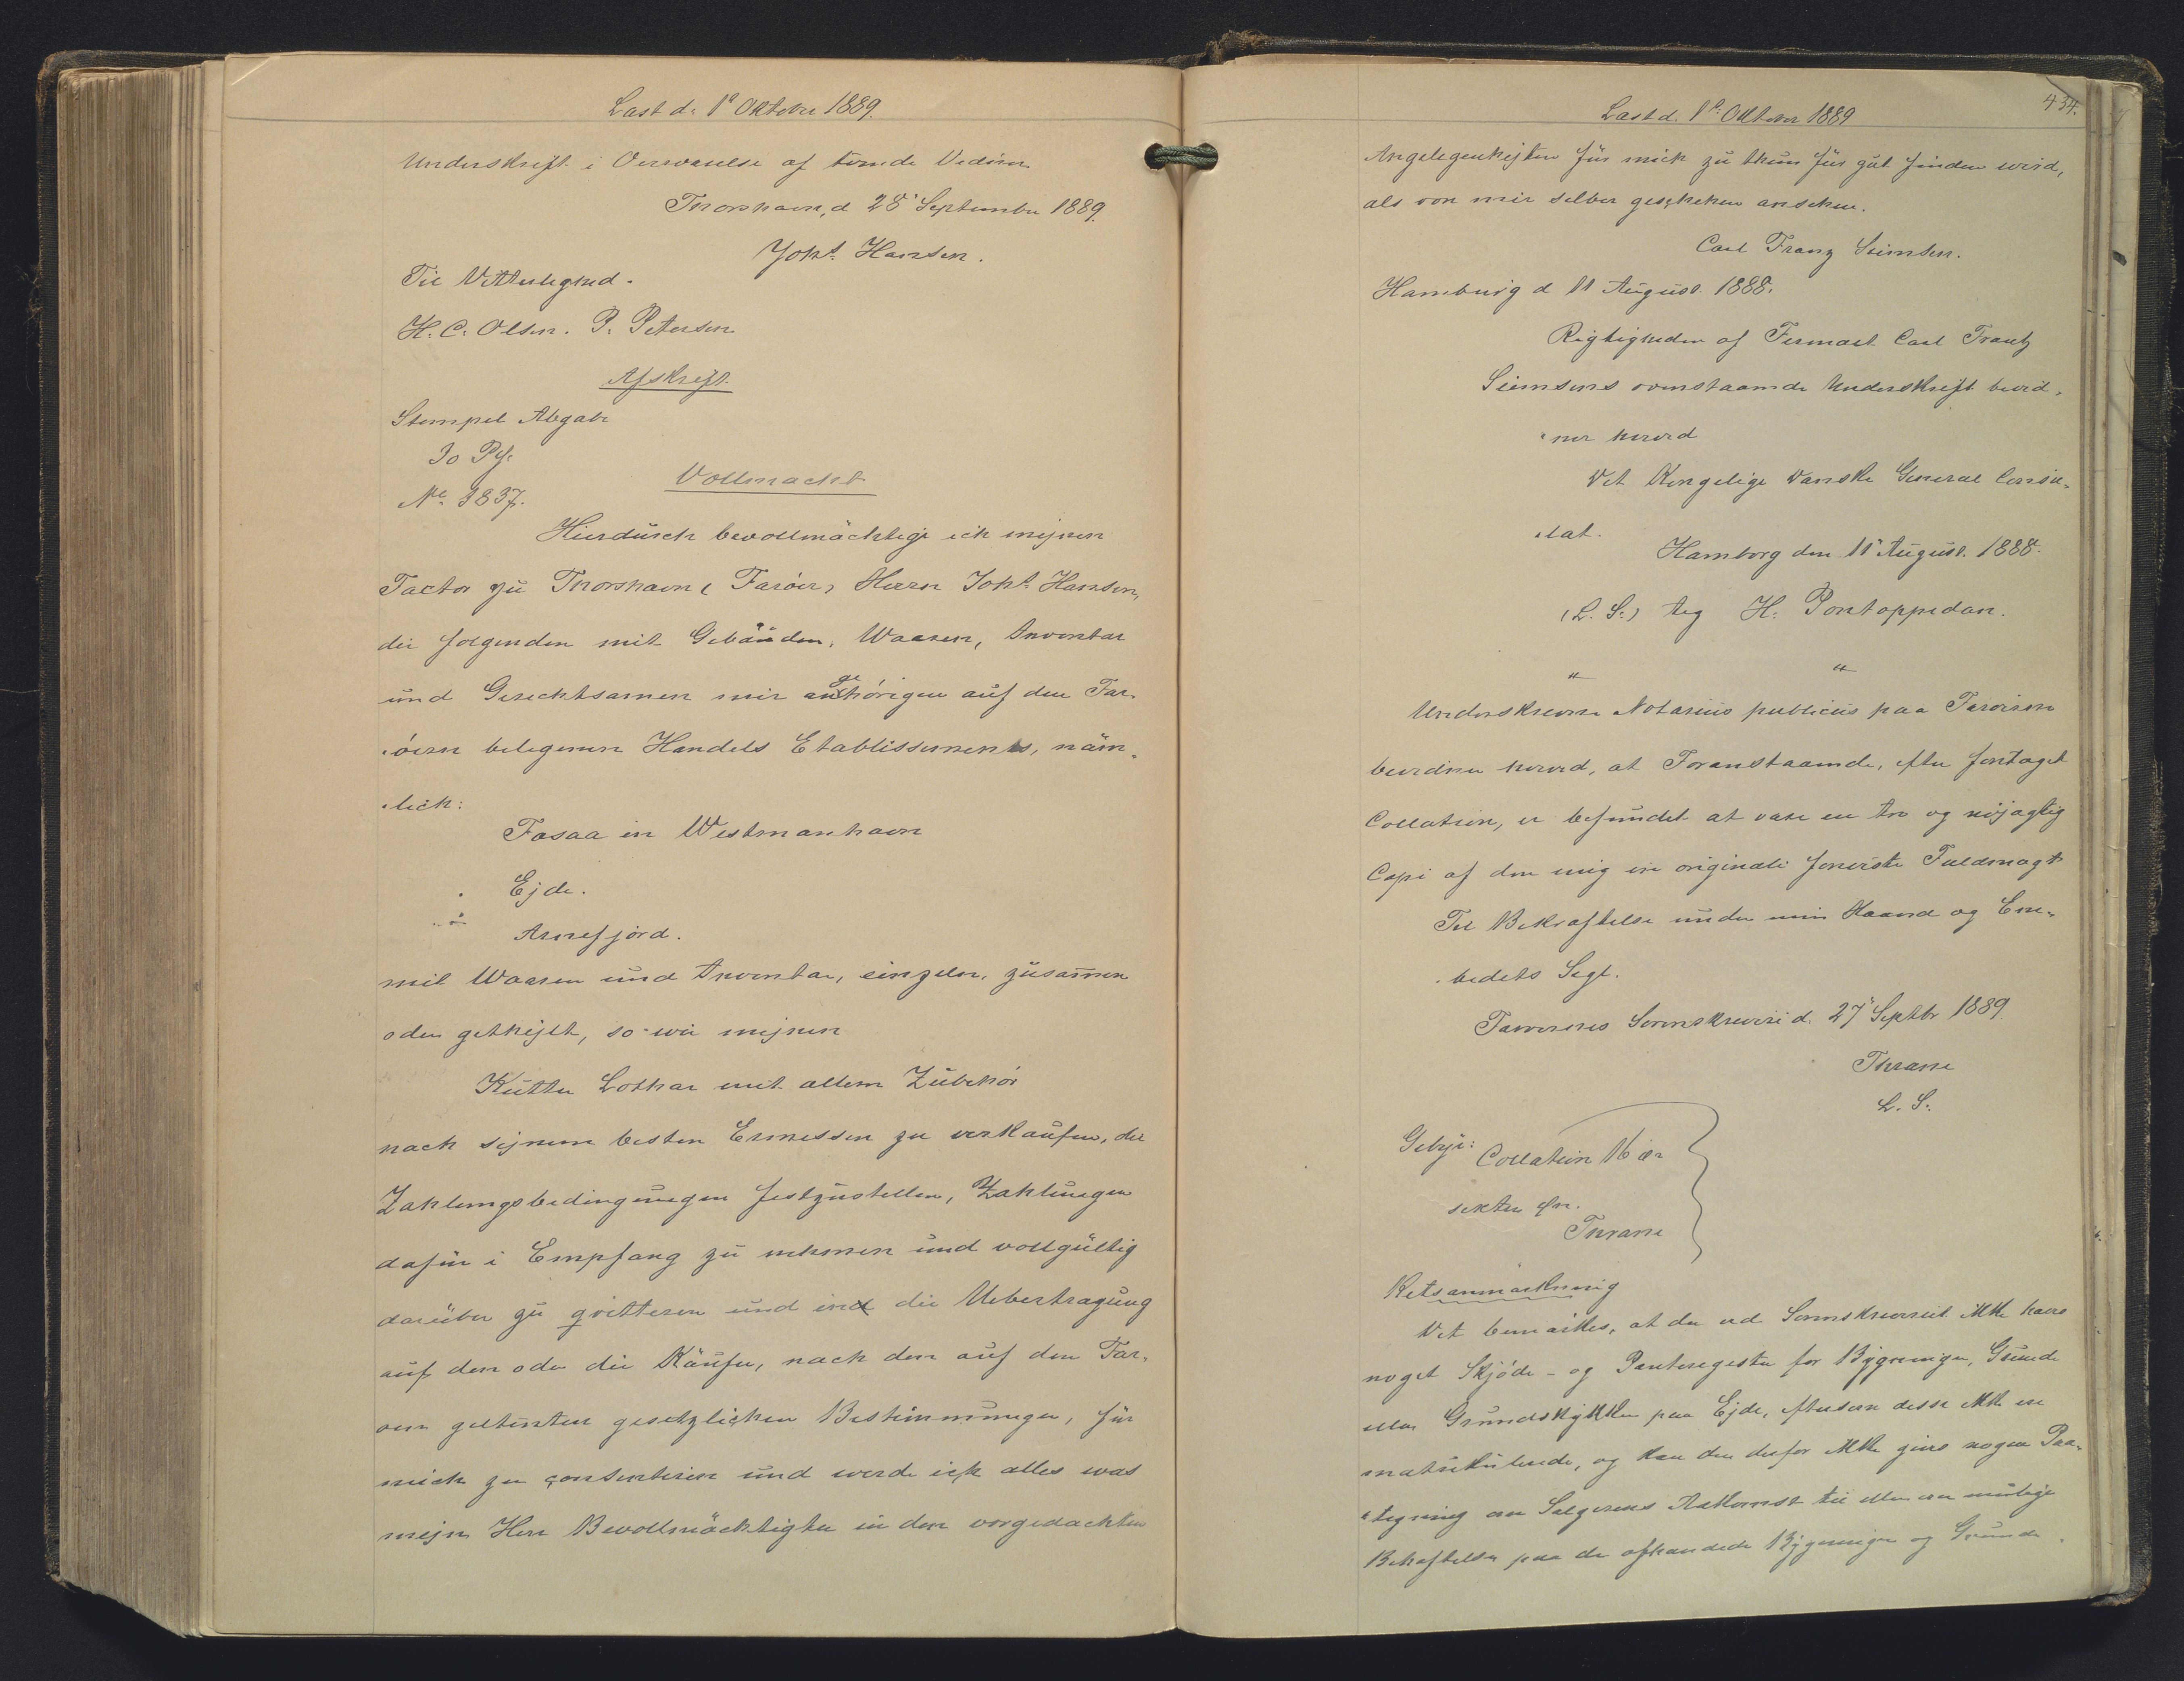 Læst d. 1ᵉ Oktober 1889.
Underskrift i Overværelse af tvende Vidner.
Thorshavn, d 28' September 1889.
Johs. Hansen.
Til Vitterlighed.
H. C. Olsen. P. Petersen
Afskrift.
Stempel Abgabe
30 Pf.
No 3837.
Vollmacht
Hierdurch bevollmächtige ich mejnen
Factor zu Thorshavn (Farøer) Herrn Johs. Hansen,
die folgenden mit Gebäuden, Waaren, Inventar
und Gerechtsamen mir angehörigen auf den Far-
øern belegenen Handels Etablissements, näm-
lich:
Fosaa in Westmanhavn
Ejde.
Arnefjord.
mit Waaren und Inventar, einzeln, zusam̄en
oder gethejlt, so wie mejnen
Kutter Lothar mit allem Zubehör
nach sejnem besten Ermessen zu verkaufen, die
Zahlungsbedingungen festzustellen, Zahlungen
dafür i Empfang zu nehmen und vollgültig
darüber zu qvitteren und in die Uebertragung
auf den oder die Käufer, nach den auf den Far-
ern geltenten gesetzlichen Bestimmungen, für
mich zu consentiren und werde ich alles was
mejn Herr Bevollmächtigter in den vorgedachten
434.
Læst d. 1ᵉ Oktober 1889
Angelegenhejten für mich zu thun für gut finden wird,
als von mir selber geschehen ansehen.
Carl Franz Siemsen.
Hamburg d 11 August. 1888.
Rigtigheden af Firmaet Carl Frantz
Siemsens ovenstaaende Underskrift bevid-
ner herved
Det Kongelige danske General Consu-
lat.
Hamborg den 11' August. 1888.
(L. S.) teg H. Pontoppidan.
" "
Underskrevne Notarius publicus paa Færøerne
bevidner herved, at Foranstaaende, efter foretaget
Collation, er befundet at være en tro og nøjagtig
Copi af den mig in originali foreviste Fuldmagt
Til Bekræftelse under min Haand og Em-
bedets Segl.
Færøernes Sorenskriveri d. 27' Septbr 1889.
Thrane
L. S.
Gebyr: Collation 16 ør
seksten Øre.
Thrane
Retsanmærkning
Det bemærkes, at der ved Sorenskriveriet ikke haves
noget Skjøde- og Panteregister for Bygninger, Grunde
eller Grundstykker paa Ejde, eftersom disse ikke ere
matrikulerede, og kan der derfor ikke gives nogen Paa-
tegning om Sælgerens Adkomst til eller om mulige
Behæftelser paa de afhændede Bygninger og Grunde.